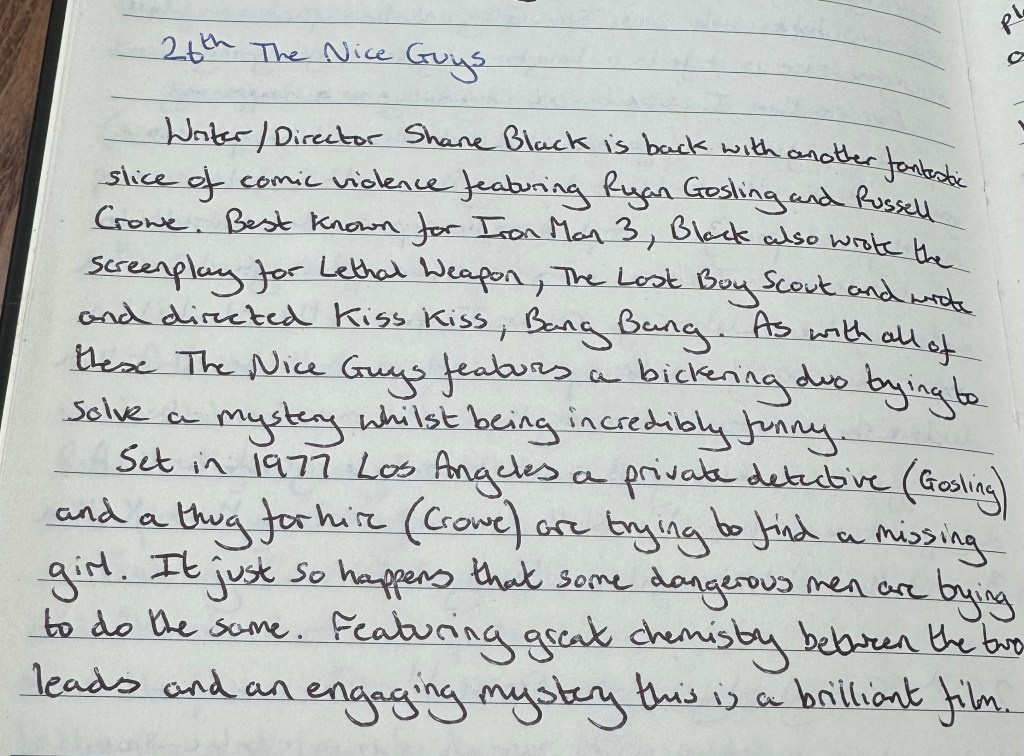 26th The Nice Guys
Writer/Director Shane Black is back with another fantastic
slice of comic violence featuring Ryan Gosling and Russell
Crowe. Best known for Iron Man 3, Black also wrote the
screenplay for Lethal Weapon, The Last Boy Scout and wrote
and directed Kiss Kiss, Bang Bang. As with all of
these The Nice Guys features a bickering duo trying to
solve a mystery whilst being incredibly funny.
Set in 1977 Los Angeles a private detective (Gosling)
and a thug for hire (Crowe) are trying to find a missing
girl. It just so happens that some dangerous men are trying
to do the same. Featuring great chemistry between the two
leads and an engaging mystery this is a brilliant film.